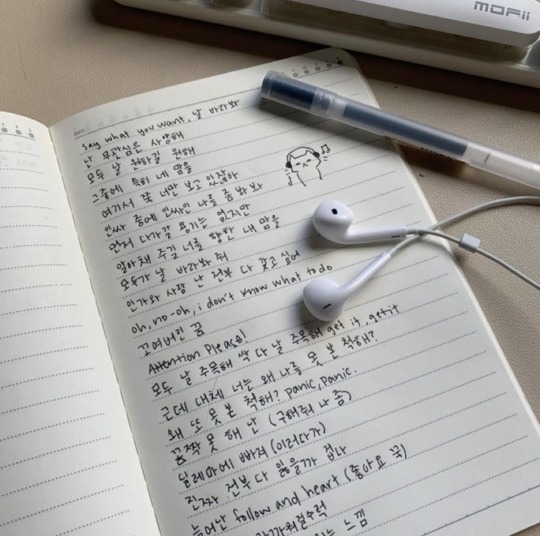 MOFii
Say what you want, 날 바라봐
난 무관심은 사양해
모두 날 원하길 원해
그중에 특히 네 맘을
여기서 딱 너만 보고 있잖아
인싸 중에 인싸인 나를 좀 봐봐
먼저 다가갈 용기는 없지만
알아채 주길 너를 향한 내 맘을
모두가 날 바라봐 줘
인기와 사랑 난 전부 다 갖고 싶어
oh, no-oh, i don't know what to do
꼬여버린 꿈
Attention Please!
모두 날 주목해 싹 다 날 주목해 get it, get it
근데 대체 너는 왜 나를 못 본 척해?
왜 또 못 본 척해? panic, panic.
꼼짝 못 해 난 (구해줘 나 좀)
딜레마에 빠져 (이러다가)
진짜 전부 다 잃을까 겁나
늘어난 follow and heart (좋아요 꾹)
가까워질수록
느낌